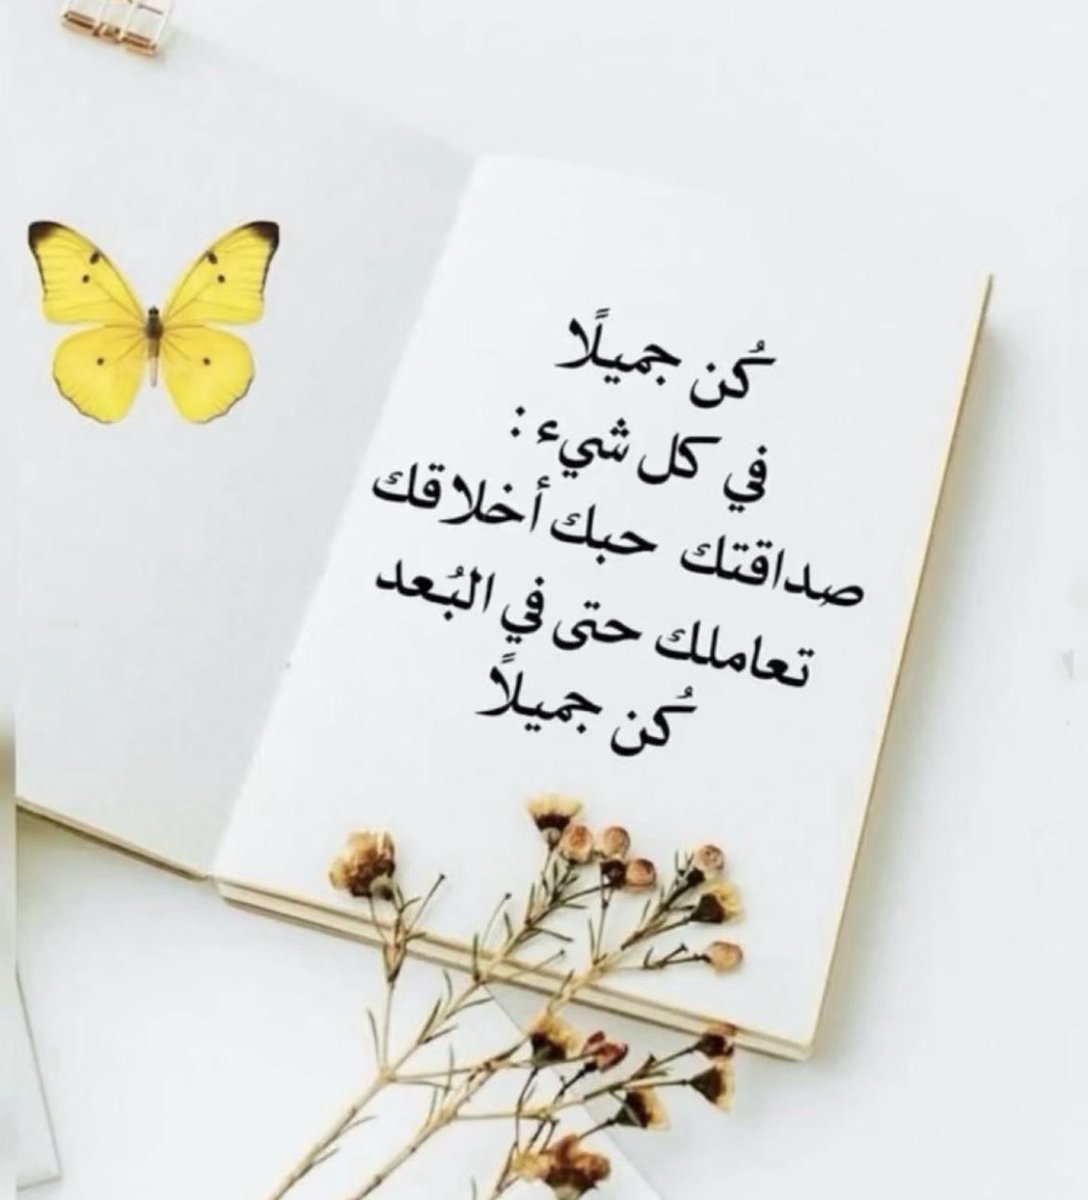 كُن جميلًا
في كل شيء :
صداقتك حبك أخلاقك
تعاملك حتى في البُعد
كُن جميلاً